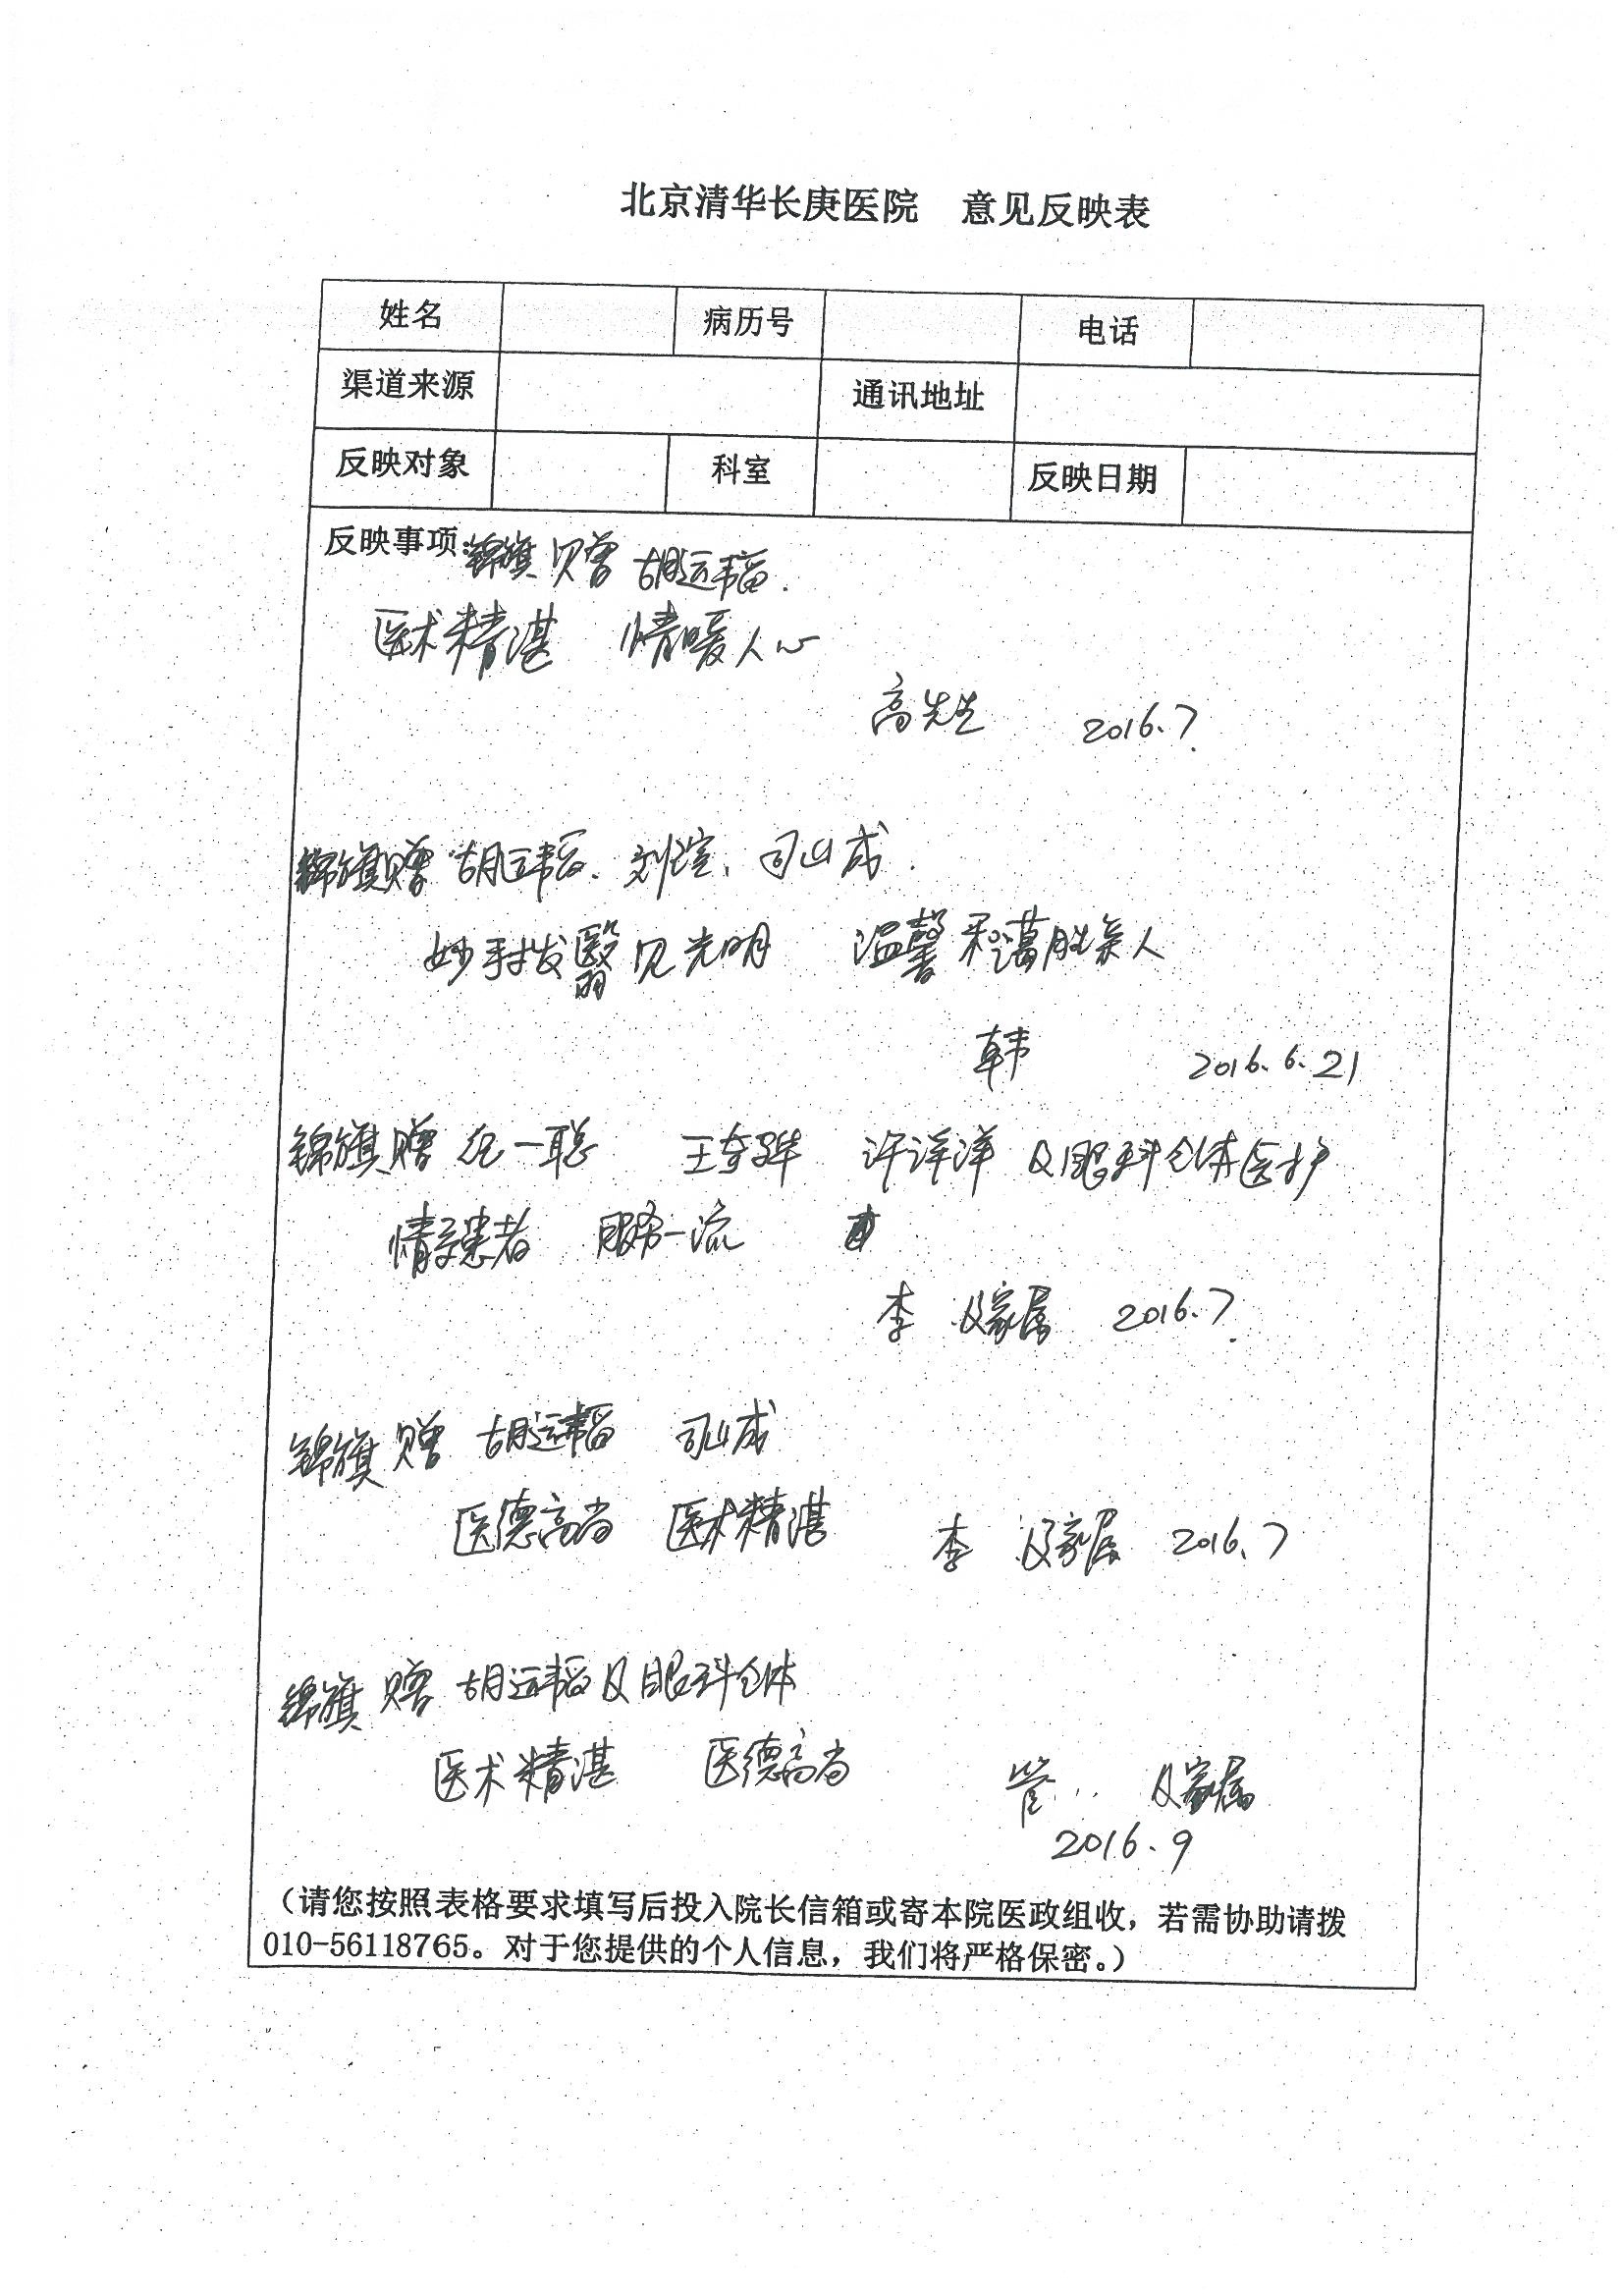 北京清华长庚医院 意见反映表
姓名 病历号 电话
渠道来源 通讯地址
反映对象 科室 反映日期
反映事项：锦旗 赠 胡运韬.
医术精湛 情暖人心
高先生 2016.7.
锦旗赠 胡运韬、刘 、司山成.
妙手拨翳见光明 温馨 胜亲人
韩 2016.6.21
锦旗赠 一聪 王奇骅 许洋洋 及眼科全体医护
情系患者 服务一流
李 及家属 2016.7.
锦旗 赠 胡运韬 司山成
医德高尚 医术精湛 李 及家属 2016.7
锦旗 赠 胡运韬及眼科全体
医术精湛 医德高尚 管 及家属
2016.9
（请您按照表格要求填写后投入院长信箱或寄本院医政组收，若需协助请拨
010-56118765。对于您提供的个人信息，我们将严格保密。）